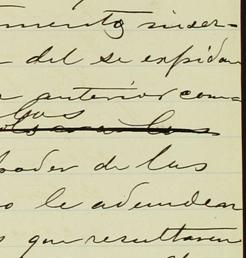 mento sincer-
del se expidan
anterior com-
los
poder de las
o le adeudan
s que resultaren